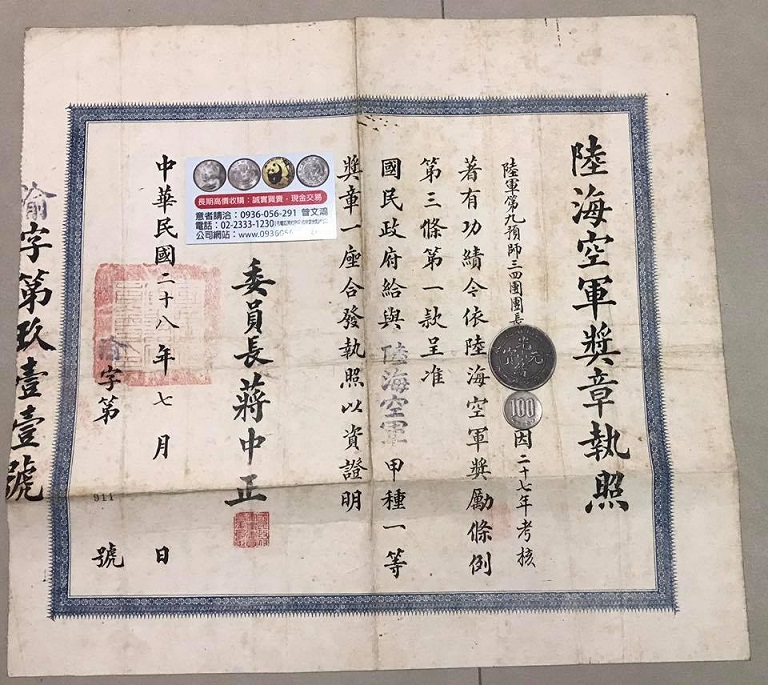 陸海空軍獎章執照
陸軍第九預師三四團團長
因二十七年考核
著有功績令依陸海空軍獎勵條例
第三條第一款呈准
國民政府給與陸海空軍甲種一等
獎章一座合發執照以資證明
委員長蔣中正
中華民國二十八年七月 日
字第 號
011
字第玖壹壹號
光緒元寶
100
長期高價收購：誠實買賣・現金交易
意者請洽：0936-056-291 曾文鴻
電話：02-2333-1230
公司網站：www.0936056